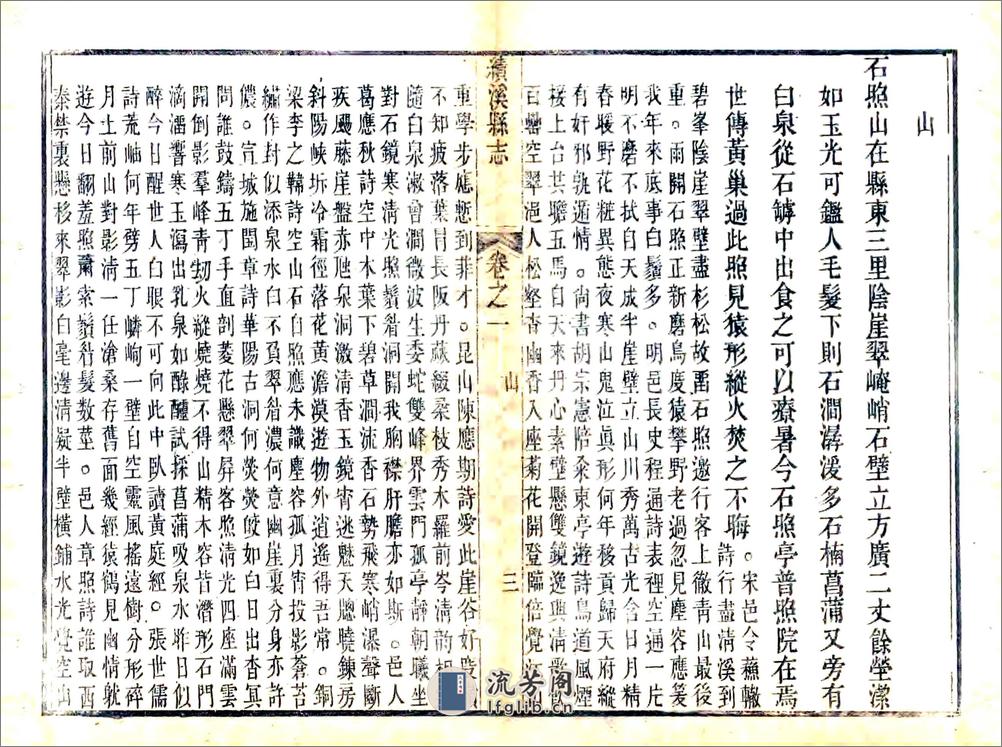 山
石照山在縣東三里陰崖翠崦峭石壁立方廣二丈餘瑩潔
如玉光可鑑人毛髮下則石澗潺湲多石楠菖蒲又旁有
白泉從石罅中出食之可以療暑今石照亭普照院在焉
世傳黃巢過此照見猿形縱火焚之不晦
宋邑令蘇轍
詩行盡清溪到
碧峯陰崖翠壁盡杉松故畱石照邀行客上徹青山最後
重。雨開石照正新磨鳥度猿攀野老過忽見塵容應笑
我年來底事白鬚多。明邑長史程通詩表裡空通一片
明不磨不拭自天成半崖壁立山川秀萬古光含日月精
春暖野花粧異態夜寒山鬼泣眞形何年移貢歸天府縱
有奸邪莫遁情。尙書胡宗憲陪
東亭遊詩鳥道風煙
接上台共瞻五馬自天來丹心素壁懸雙鏡逸興清
百巒空翠浥人松壑杳幽香入座菊花開登臨倍覺
重學步應慙到菲才。昆山陳應期詩愛此崖谷好
不知疲落葉冒長阪丹蘇綴桑枝秀木羅前岑清韵
隨白泉漱曾澗微波生委蛇雙峰界雲門孤亭靜朝曦坐
對石鏡寒清光照鬚眉洞開我胸襟肝膽亦如斯。邑人
葛應秋詩空中木葉下碧草澗流香石勢飛寒峭瀑聲斷
疾颸藤崖盤赤虺泉洞激清香玉鏡宵逃魅天聰曉鍊房
斜陽峽坼冷霜徑落花黃澹漠遊物外逍遙得吾常。銅
梁李之
詩空山石白照應未識塵容孤月宵投影蒼苔
繡作封似添泉水白不負翠眉濃何意幽崖裏分身亦許
儂。宣城施閏章詩華陽古洞何熒熒皎如白日出杳冥
問誰鼓鑄五丁手直剖菱花懸翠屏客照清光四座滿雲
開倒影羣峰青刼火縱燒燒不得山精木客皆潛形石門
滴溜響寒玉瀉出乳泉如醁醽試採菖蒲吸泉水昨日似
醉今日醒世人白眼不可向此中臥讀黃庭經。張世儒
詩荒岫何年劈五丁嶙峋一壁白空靈風搖遠樹分形碎
月上前山對影清一任滄桑存舊面幾經猿鶴見幽情躭
遊今日翻羞照蕭索鬚眉髮数莖。邑人章照詩誰取西
秦禁裏懸移來翠影白毫邊清疑半壁橫鋪水光覺空山
續溪縣志
卷之一
山
三
流芳阁
lfglib.com